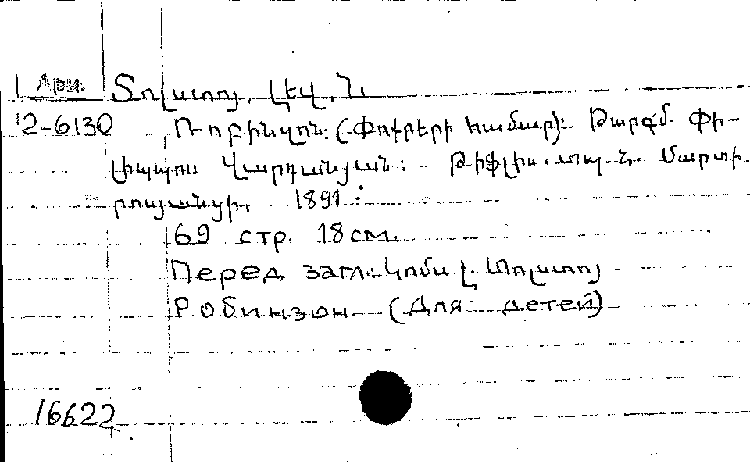 Арм. Տոլստոյ, Լեվ. Ն.
12-6130 Ռոբինզոն: (Փոքրերի համար): Թարգմ. Փի-
լիպպոս Վարդանյան: - Թիֆլիս. տպ. Ն. Մարտի-
րոսյանցի, 1891:
69 стр. 18 см.
Перед загл. կոմս Լ. Տոլստոյ
Робинзон (Для детей)
16622